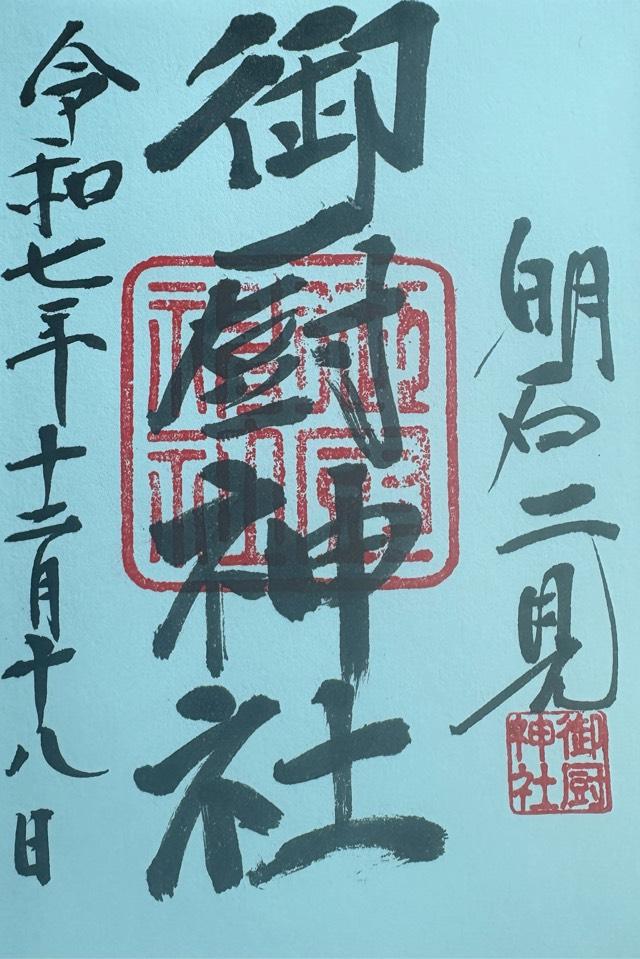 明石二見
御厨神社
御厨神社
御厨神社
令和七年十二月十八日